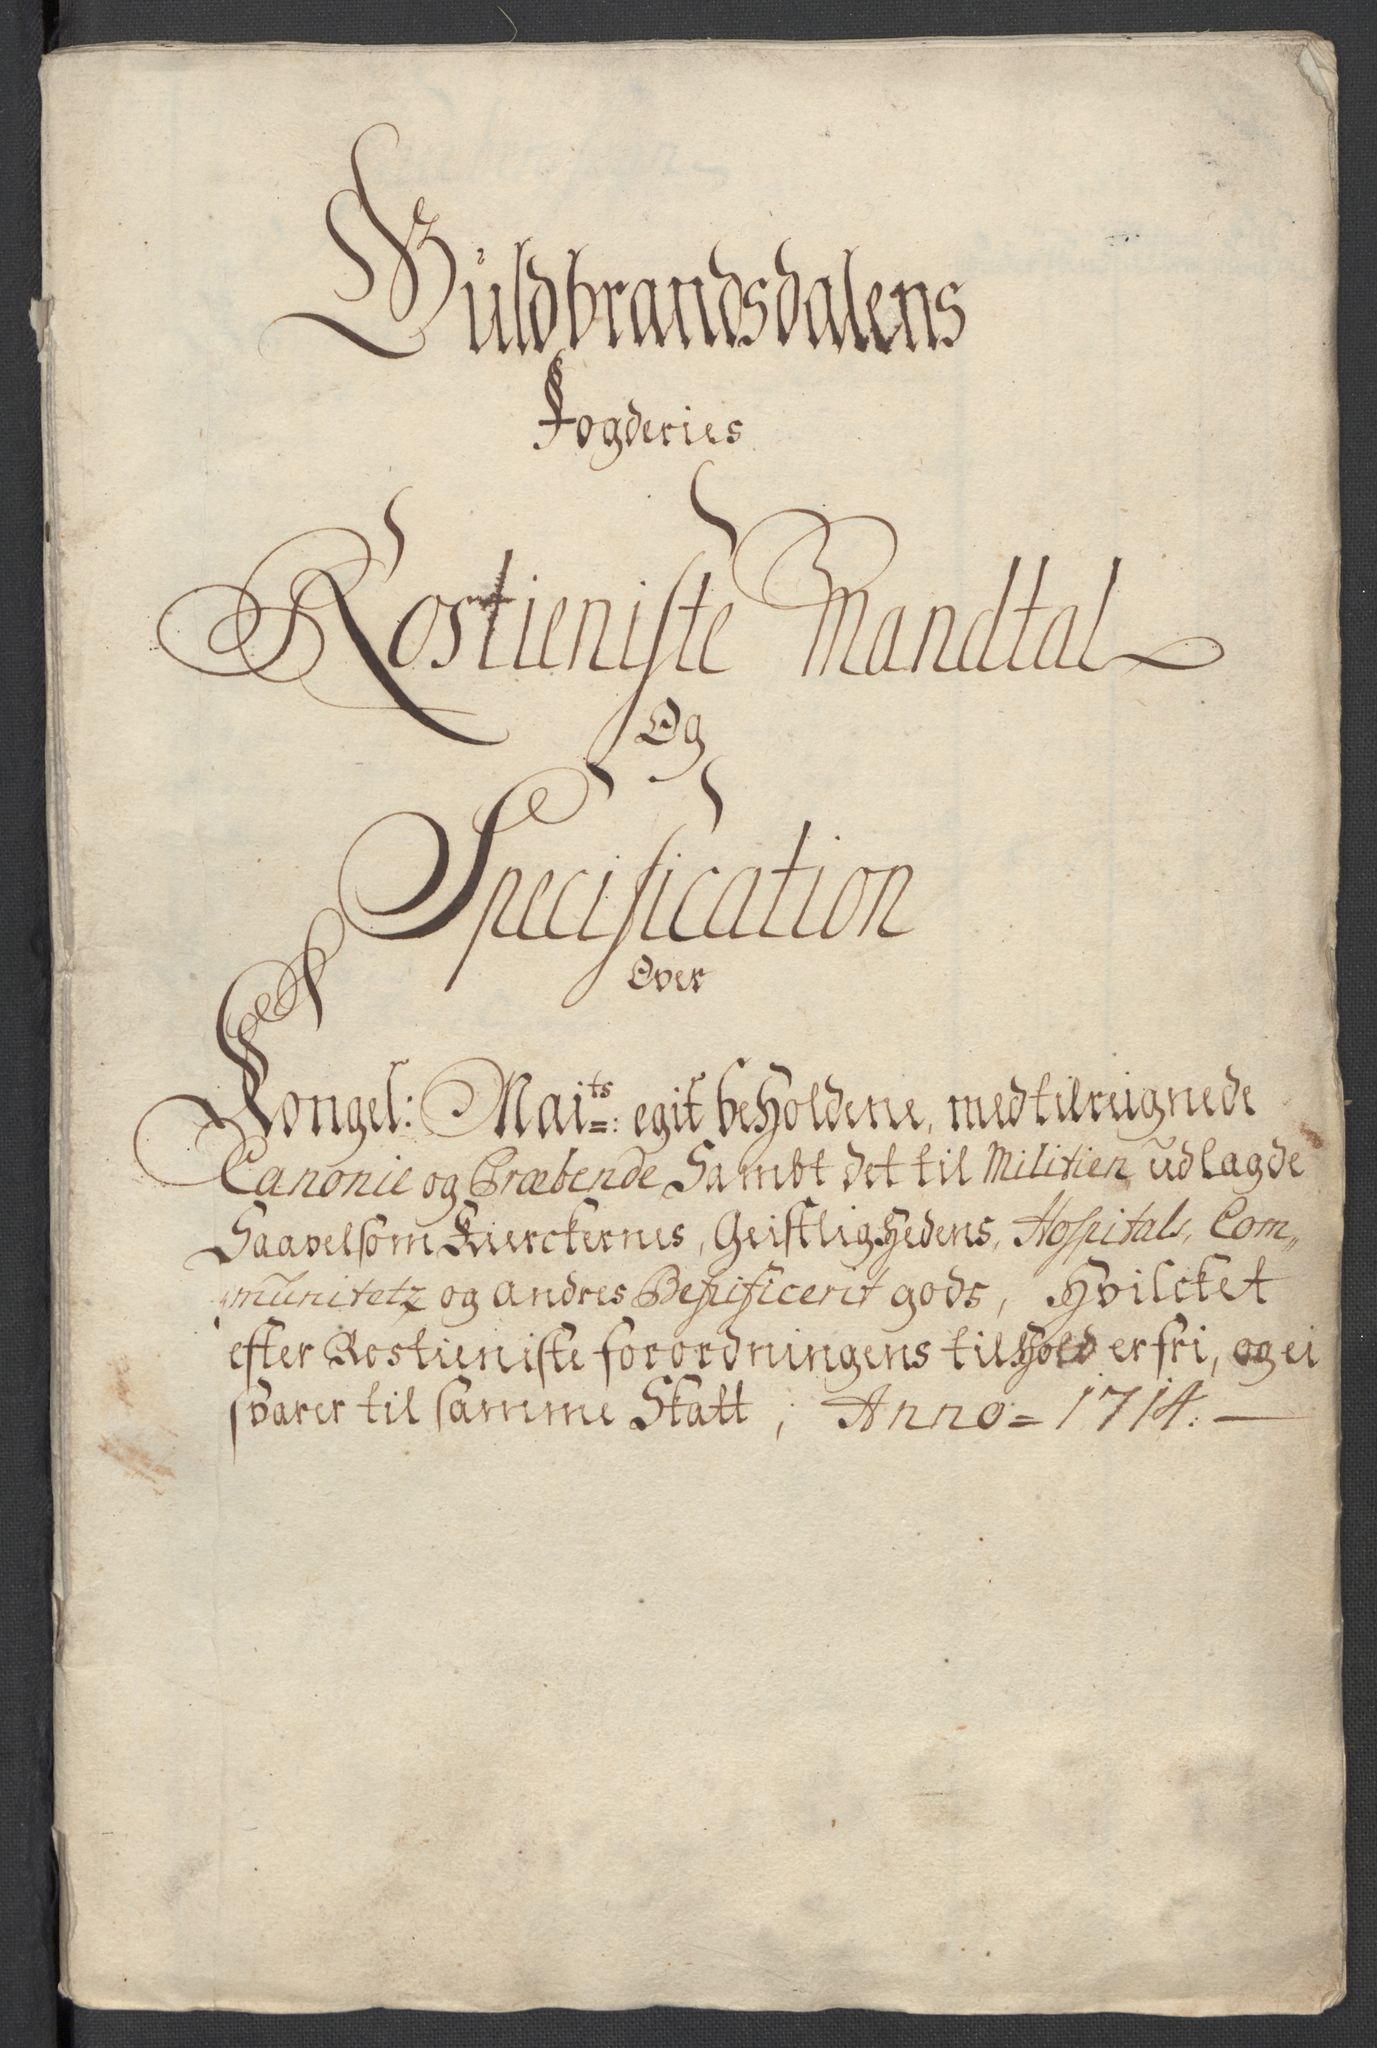 Guldbrandsdalens
Fogderies
Rostieniste Mandtal
Og
Specification
Over
Kongel: Maits: egit beholdene, medtilreignede
Canonie og Præbende, Sambt det til Militien udlagde
Saavelsom Kierckernes, Geistlighedens, Hospitals, Com„
munitetz og andres Besificerit gods, Hvilcket
efter Rostieniste forordningens tilhold er fri, og ei
svarer til samme Skatt, Anno = 1714: